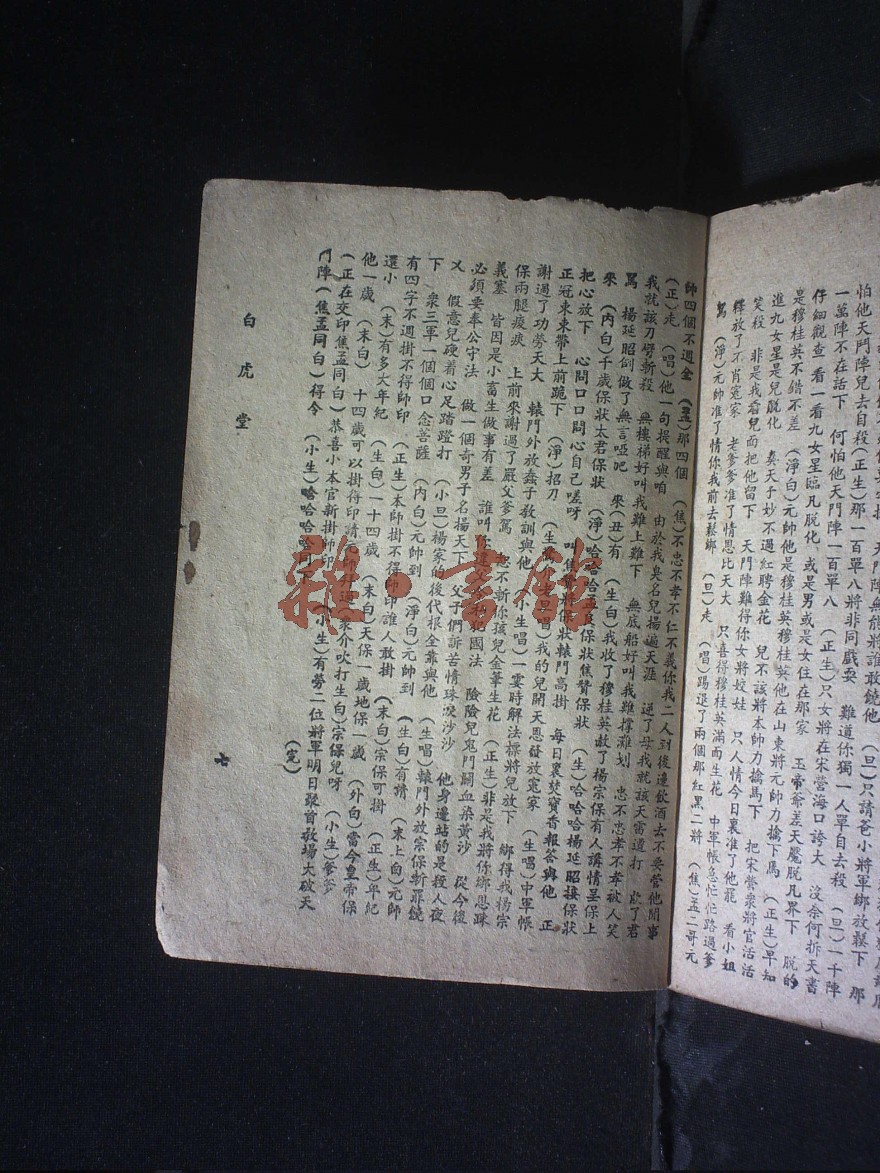 怕他天門陣兒去自殺(正生)那一百單八將非同戲耍　難道你獨一人單自去殺　(旦)一千陣
一萬陣不在話下　何怕他天門陣一百單八　(正生)只女將在宋營海口誇大　沒奈何拆天書
仔細觀查　看一看九女星臨凡脫化　或是男或是女住在那家　玉帝爺差天魔脫凡界下　脫的
是穆桂英不錯不差　(淨白)元帥他是穆桂英穆桂英他在山東將元帥力擒下馬　(正生)早知
進九女星是兒脫化　奏天子妙不過紅聘金花　兒不該將本帥力擒馬下　把宋營衆將官活活
笑殺　非是我看兒面把他留下　天門陣難得你女將姣娃　只人情今日裏准了他罷　看小姐
釋放了不肖寃家　老爹爹准了情恩比天大　只喜得穆桂英滿面生花　中軍帳急忙忙路過爹
罵　(淨)元帥准了情你我前去鬆綁　(旦)走　(唱)踢退了兩個那紅黑二將　(焦)孟二哥元
帥四個不週全　(孟)那四個　(焦)不忠不孝不仁不義你我二人到後邊飲酒去不要管他閒事
(正)走　(唱)他一句提醒與咱　由於我臭名兒揚遍天涯　逆了母我就該天雷道打　欺了君
我就該刀劈斬殺　無樓梯好叫我難上難下　無底船好叫我難撑灘划　忠不忠孝不孝被人笑
罵　楊延昭倒做了無言啞吧　來(丑)有　(生白)我收了穆桂英赦了楊宗保有人講情呈保上
來　(內白)千歲保狀太君保狀　(淨)哈哈哈孟良保狀焦贊保狀　(生)哈哈哈楊延昭接保狀
把心放下　心問口口問心自己嗟呀　叫焦贊將保狀轅門高掛　每日裏焚寶香報答與他　正
正冠束束帶上前跪下　(淨)招刀　(生罵)老旦唱)我的兒開天恩發放寃家　(生唱)中軍帳
謝過了功勞天大　轅門外放蠢子教訓與他　(小生唱)一霎時解法標將兒放下　綁得我楊宗
保兩腿痠痰　上前來謝過了嚴父爹駡　您不斬你孩兒金筆生花　(正生)非是我將你綁恩疎
義塞　皆因是小畜生做事有差　誰叫你違父令敢犯國法　險險兒鬼門關血染黃沙　從今後
必須要奉公守法　做一個奇男子名揚天下　父子們訴苦情珠淚沙沙　他身邊站的是
又　假意兒硬着心足踏蹬打　(小旦)楊家的後代根全靠與他　(生唱)轅門外放宗保斬罪饒
下　衆三軍一個個口念菩薩　(內白)元帥到　(淨白)元帥到　(生白)有請　(末上白)元帥
有四字不週掛不得帥印　(正生)本帥掛不得帥印誰人敢掛　(末白)宗保可掛　(正生)年紀
還小　(末)有多大年紀　(生白)一十四歲　(末白)天保一歲地保一歲　(外白)當今皇帝保
他一歲　(末白)　十四歲可以掛得印請元帥升過　(衆介吹打生白)宗保兒呀　(小生)爹爹
(正在交印焦孟同白)恭喜小本官新掛帥印　(小生)有勞二位將軍明日聚首教場大破天
門陣　(焦孟同白)得令　(小生)哈哈哈哈同下　(完)
白虎堂
七
雜·書館